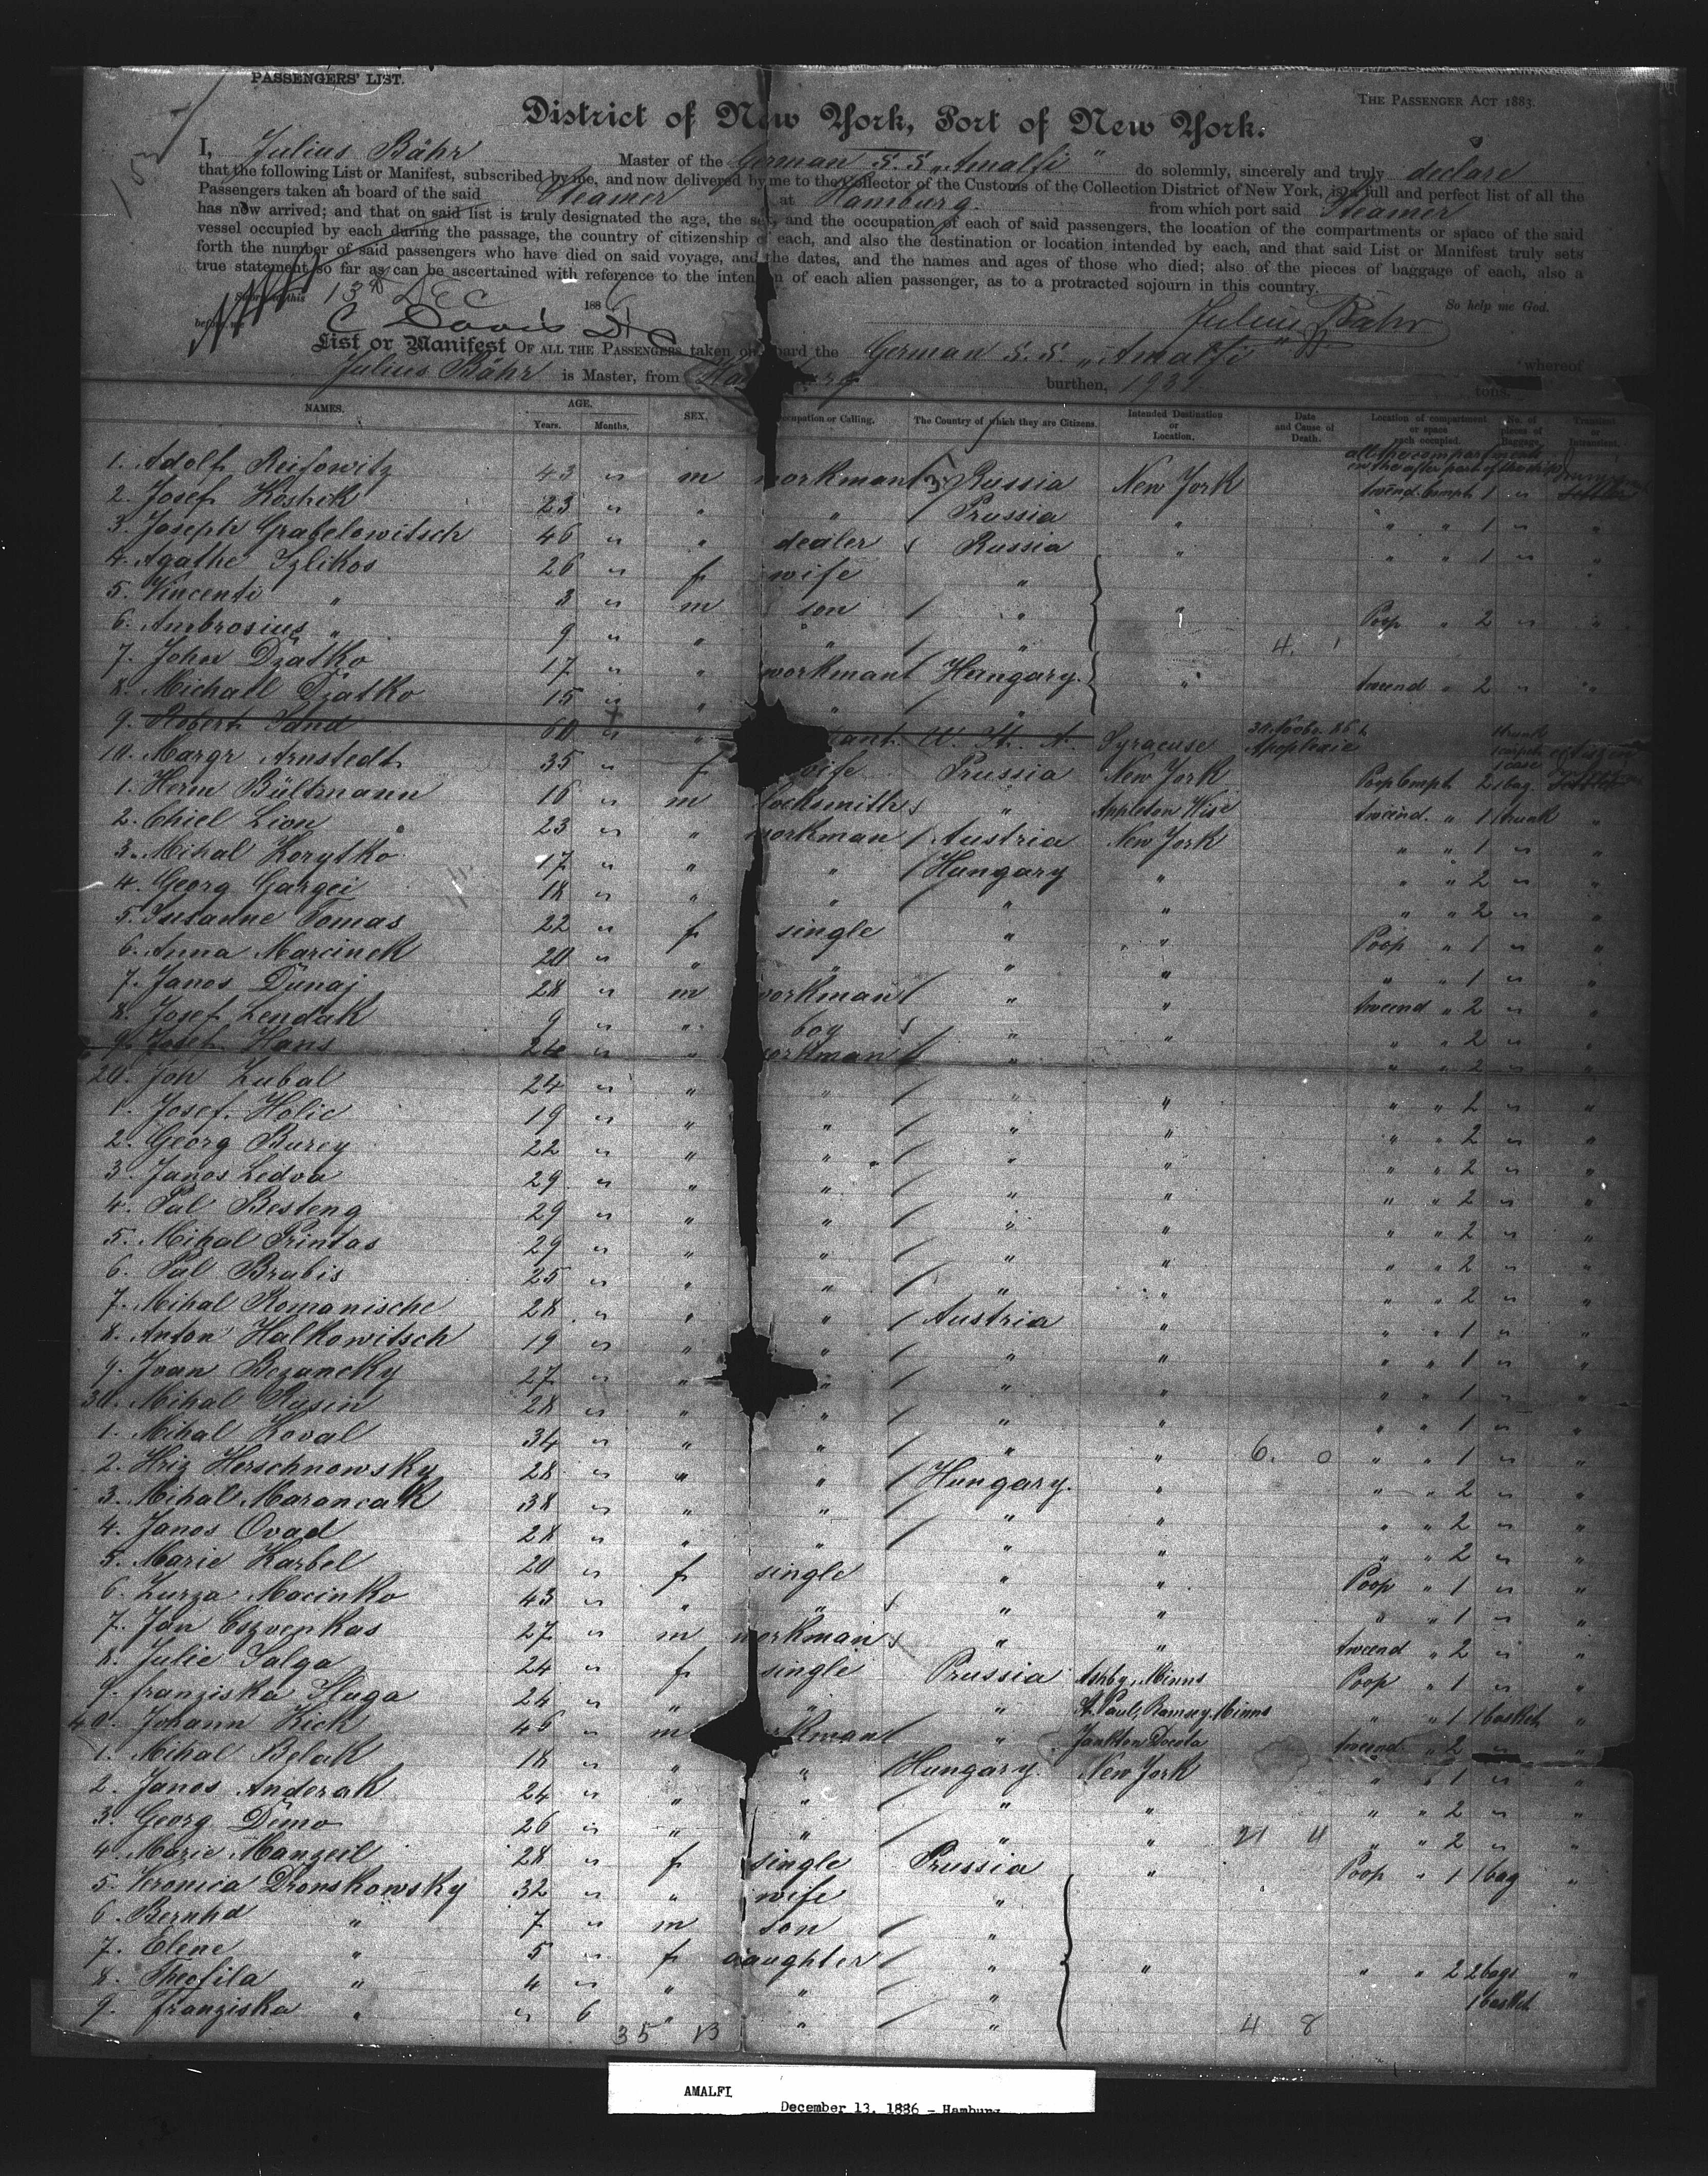 PASSENGERS' LIST.
THE PASSENGER ACT 1883.
District of New York, Port of New York.
I, Julius Bähr Master of the German S.S. „Amalfi" do solemnly, sincerely and truly declare
that the following List or Manifest, subscribed by me, and now delivered by me to the Collector of the Customs of the Collection District of New York, is a full and perfect list of all the
Passengers taken on board of the said Steamer at Hamburg. from which port said Steamer
has now arrived; and that on said list is truly designated the age, the sex, and the occupation of each of said passengers, the location of the compartments or space of the said
vessel occupied by each during the passage, the country of citizenship of each, and also the destination or location intended by each, and that said List or Manifest truly sets
forth the number of said passengers who have died on said voyage, and the dates, and the names and ages of those who died; also of the pieces of baggage of each, also a
true statement so far as can be ascertained with reference to the intention of each alien passenger, as to a protracted sojourn in this country.
this 13th Dec 1886 So help me God.
before me C Davis Julius Bähr
List or Manifest OF ALL THE PASSENGERS taken on board the German S.S. „Amalfi" whereof
Julius Bähr is Master, from burthen, 1939 tons.
NAMES. AGE. Years. Months. SEX. Occupation or Calling. The Country of which they are Citizens. Intended Destination or Location. Date and Cause of Death. Location of compartment or space each occupied. No. of pieces of Baggage. Transient or
all the compartments
in the after part of the ship
1. Adolf Reifowitz 43 " m workman Russia New York twend. Compt 1 "
2. Josef Koshek 23 " " " Prussia " " " 1 " "
3. Joseph Grabelowitsch 46 " " dealer Russia " " " 1 " "
4. Agathe Izlikos 26 " f wife "
5. Vincenti " 8 " m son " " Poop " 2 " "
6. Ambrosius " 9 " " " " 4. 1
7. Johor Dzatko 17 " " workman Hungary. " twend " 2 " "
8. Michall Dzatko 15 " " " "
9. Robert Sand 60 " " U. St. A. Syracuse 30 Novbr. 86 Apoplexie 1 trunk
10. Margr Arnstedt 35 " f wife Prussia New York Poop Compt 2 1 case 1 bag
1. Herm Bültmann 16 " m locksmith " Appleton Wisc twend. " 1 trunk "
2. Chiel Lion 23 " " workman Austria New York " " 1 " "
3. Mihal Korytko 17 " " " Hungary " " " 2 " "
4. Georg Gargei 18 " " " " " " " 2 " "
5. Susanne Tomas 22 " f single " " Poop " 1 " "
6. Anna Marcinek 20 " " " " " " " 1 " "
7. Janos Dunaj 28 " m workman " " twend " 2 " "
8. Josef Lendak 9 " " boy " " " " 2 " "
9. Josef Hans 24 " " workman " " " 2 " "
20. Joh Lubal 24 " " " " " " " 2 " "
1. Josef Holic 19 " " " " " " " 2 " "
2. Georg Burey 22 " " " " " " " 2 " "
3. Janos Ledva 29 " " " " " " " 2 " "
4. Pal Besteng 29 " " " " " " " 2 " "
5. Mihal Printas 29 " " " " " " " 2 " "
6. Pal Brabis 25 " " " " " " " 2 " "
7. Mihal Romanische 28 " " " Austria " " " 1 " "
8. Anton Halkowitsch 19 " " " " " " " 1 " "
9. Ivan Bezancky 27 " " " " " " " 1 " "
30. Mihal Rusin 28 " " " " " " " 1 " "
1. Mihal Koval 34 " " " " " 6. 0 " " 1 " "
2. Hriz Herschnowsky 28 " " " Hungary. " " " 2 " "
3. Mihal Marancak 38 " " " " " " " 2 " "
4. Janos Ovad 28 " " " " " " " 2 " "
5. Marie Karbel 20 " f single " " Poop " 1 " "
6. Zurza Mocinko 43 " " " " " " " 1 " "
7. Jan Eszvenkas 27 " m workman " " twend " 2 " "
8. Julie Salga 24 " f single Prussia Ashby, Minns Poop " 1 " "
9. Franziska Fluga 24 " " " " St. Paul, Ramsey, Minns " " 1 1 basket "
40. Johann Kick 46 " m workman " Jankton Docota twend " 2 " "
1. Mihal Belak 18 " " " Hungary. New York " " 1 " "
2. Janos Anderak 24 " " " " " " " 2 " "
3. Georg Demo 26 " " " " " 21 4 " " 2 " "
4. Marie Manzeil 28 " f single Prussia " Poop " 1 1 bag "
5. Veronica Dronskowsky 32 " " wife "
6. Bernhd " 7 " m son "
7. Elene " 5 " f daughter " " " " 2 2 bags "
8. Theofila " 4 " " " " 1 basket
9. Franziska " " 6 " " "
35 13 4 8
AMALFI
December 13, 1886 - Hamburg